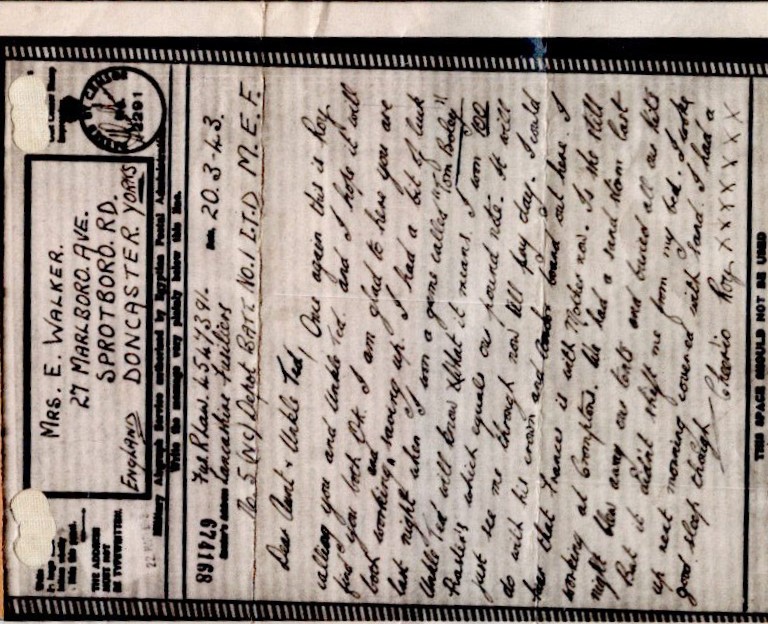 MRS. E. WALKER.
27 MARLBORO. AVE.
SPROTBORO. RD.
DONCASTER YORKS
ENGLAND
THE ADDRESS
MUST NOT
BE TYPEWRITTEN.
22291
Write the message very plainly below this line.
891749
Fus R Shaw. 4547391.
Lancashire Fusiliers
20.3.43.
No. 5 (NC) Depot BATE No.1 I.T.D M.E.F.
Dear Aunt & Unkle Ted,
Once again this is Roy
calling you and Unkle Ted. and I hope it will
find you both O.K. I am glad to here you are
both working and saveing up. I had a bit of luck
last night when I won a game called
Unkle Ted will know what it means. I won 100
Piasters which equals one pound note. It will
just see me through now till pay day. I could
do with his crown and out here. I
hear that Frances is with Mother now. Is she still
working at Cromptons. We had a sand storm last
night blew away our tents and buried all our kits
But it didn't shift me from my bed. I woke
up next morning covered with sand. I had a
good sleep though
Cheerio Roy XXXXXXX
THIS SPACE SHOULD NOT BE USED